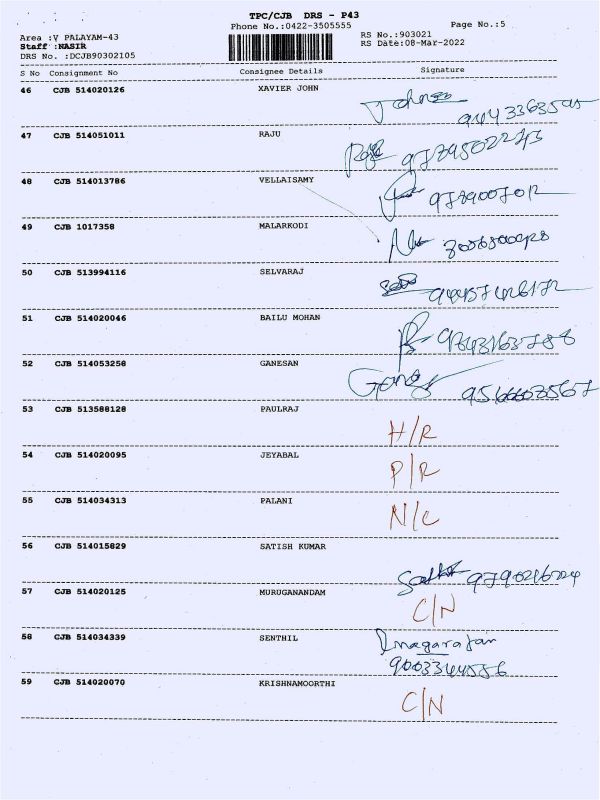 TPC/CJB DRS - P43
Phone No.:0422-3505555
Page No.:5
Area :V PALAYAM-43
RS No.:903021
Staff :NASIR
RS Date:08-Mar-2022
DRS No. :DCJB90302105
S No Consignment No Consignee Details Signature
46 CJB 514020126 XAVIER JOHN
47 CJB 514051011 RAJU
48 CJB 514013786 VELLAISAMY
49 CJB 1017358 MALARKODI
50 CJB 513994116 SELVARAJ
51 CJB 514020046 BAILU MOHAN
52 CJB 514053258 GANESAN
53 CJB 513588128 PAULRAJ
H/R
54 CJB 514020095 JEYABAL
P/R
55 CJB 514034313 PALANI
N/C
56 CJB 514015829 SATISH KUMAR
57 CJB 514020125 MURUGANANDAM
C/N
58 CJB 514034339 SENTHIL
nagarajan
59 CJB 514020070 KRISHNAMOORTHI
C/N